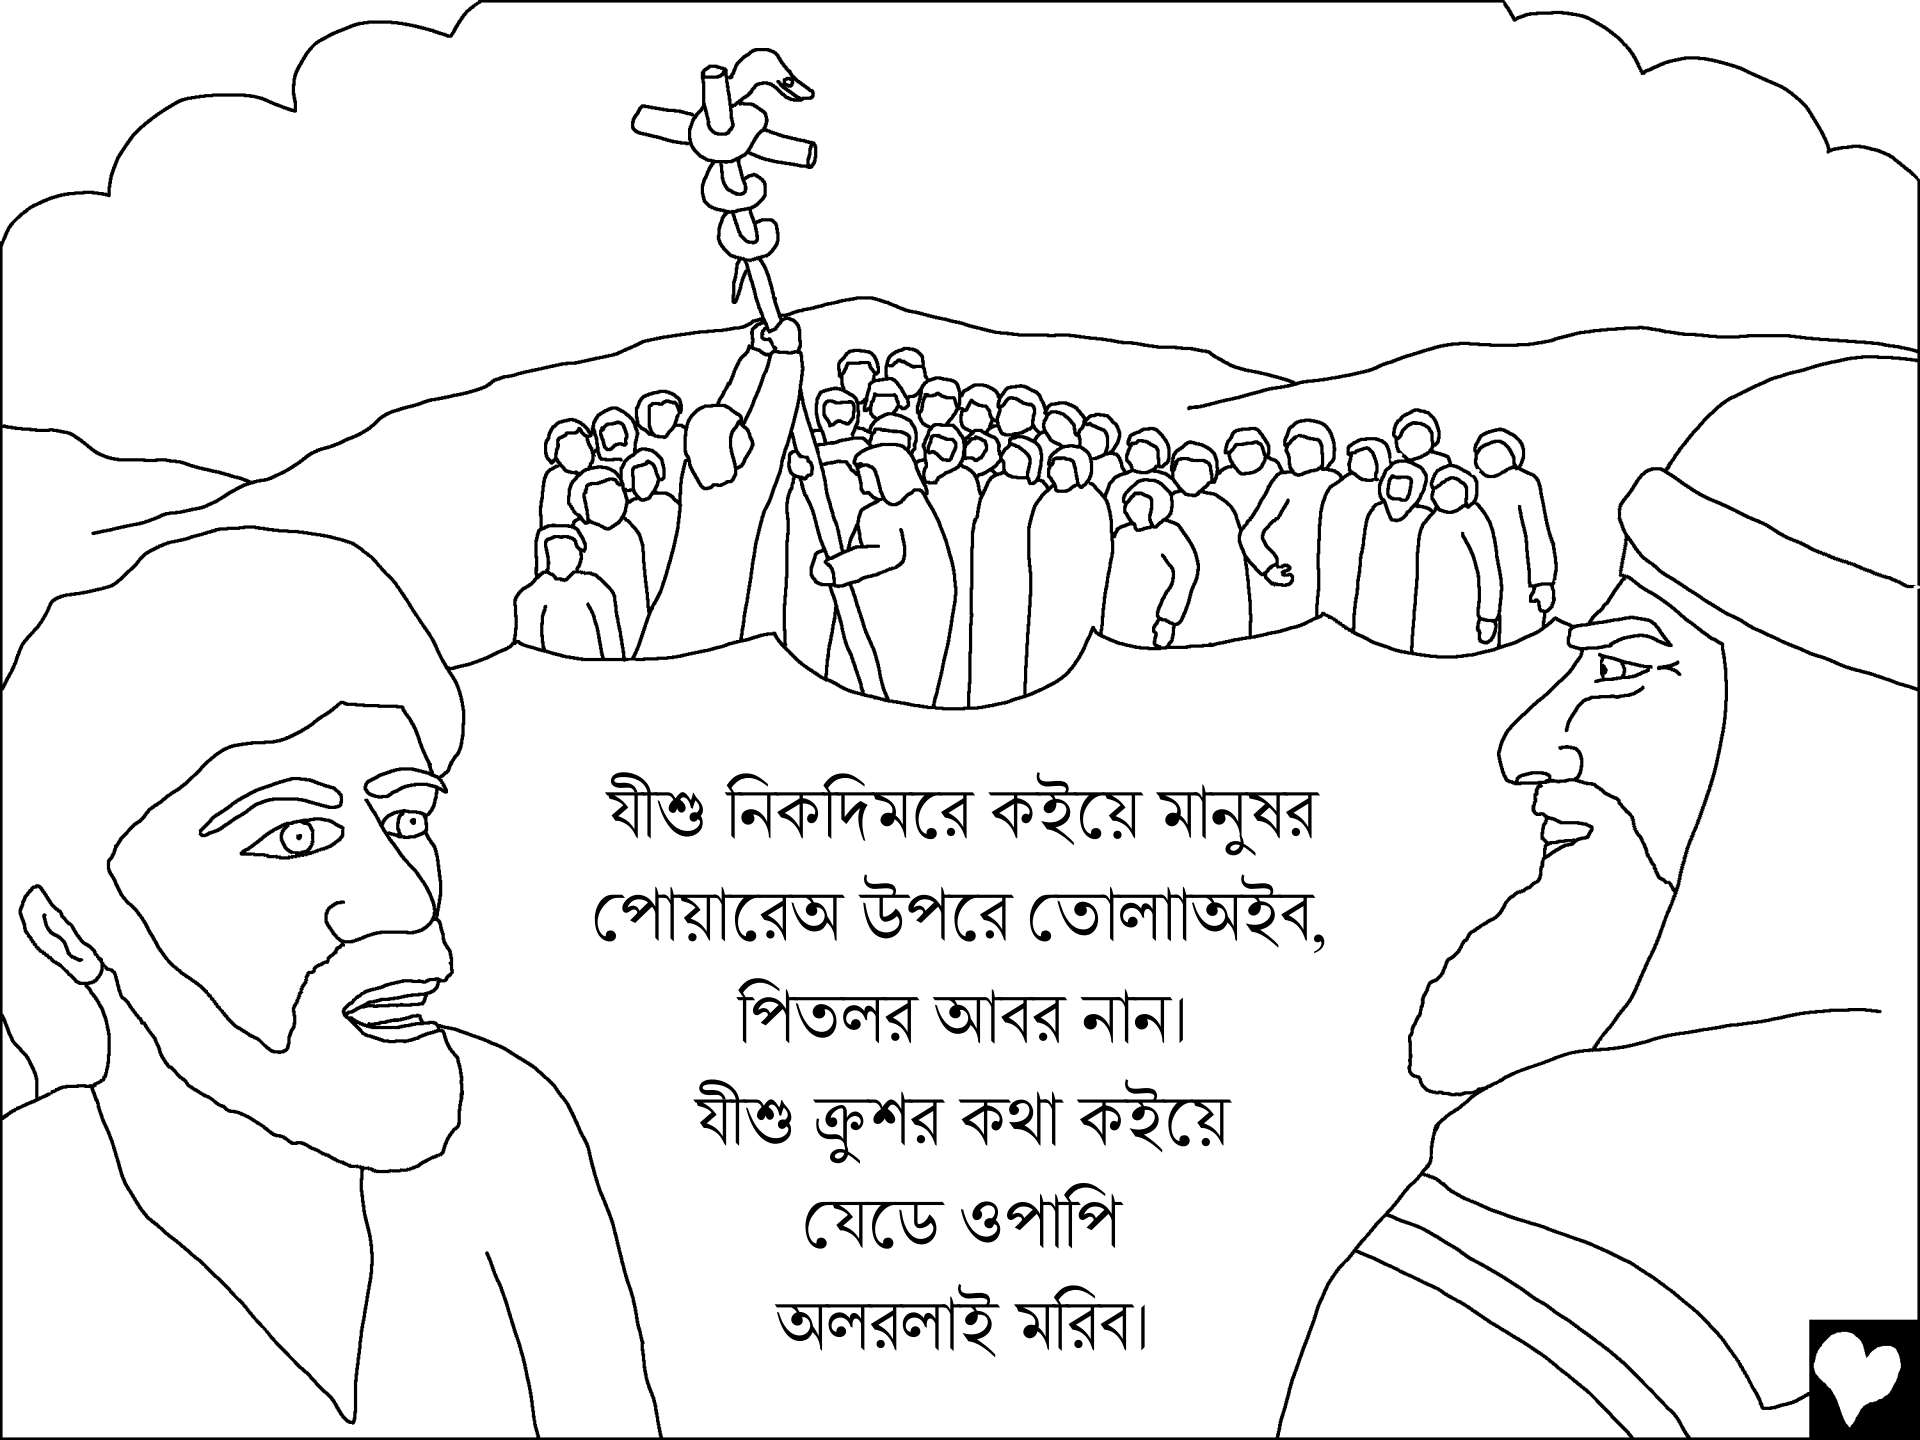 যীশু নিকদিমরে কইয়ে মানুষর
পোয়ারেঅ উপরে তোলাাঅইব,
পিতলর আবর নান।
যীশু ক্রুশর কথা কইয়ে
যেডে ওপাপি
অলরলাই মরিব।